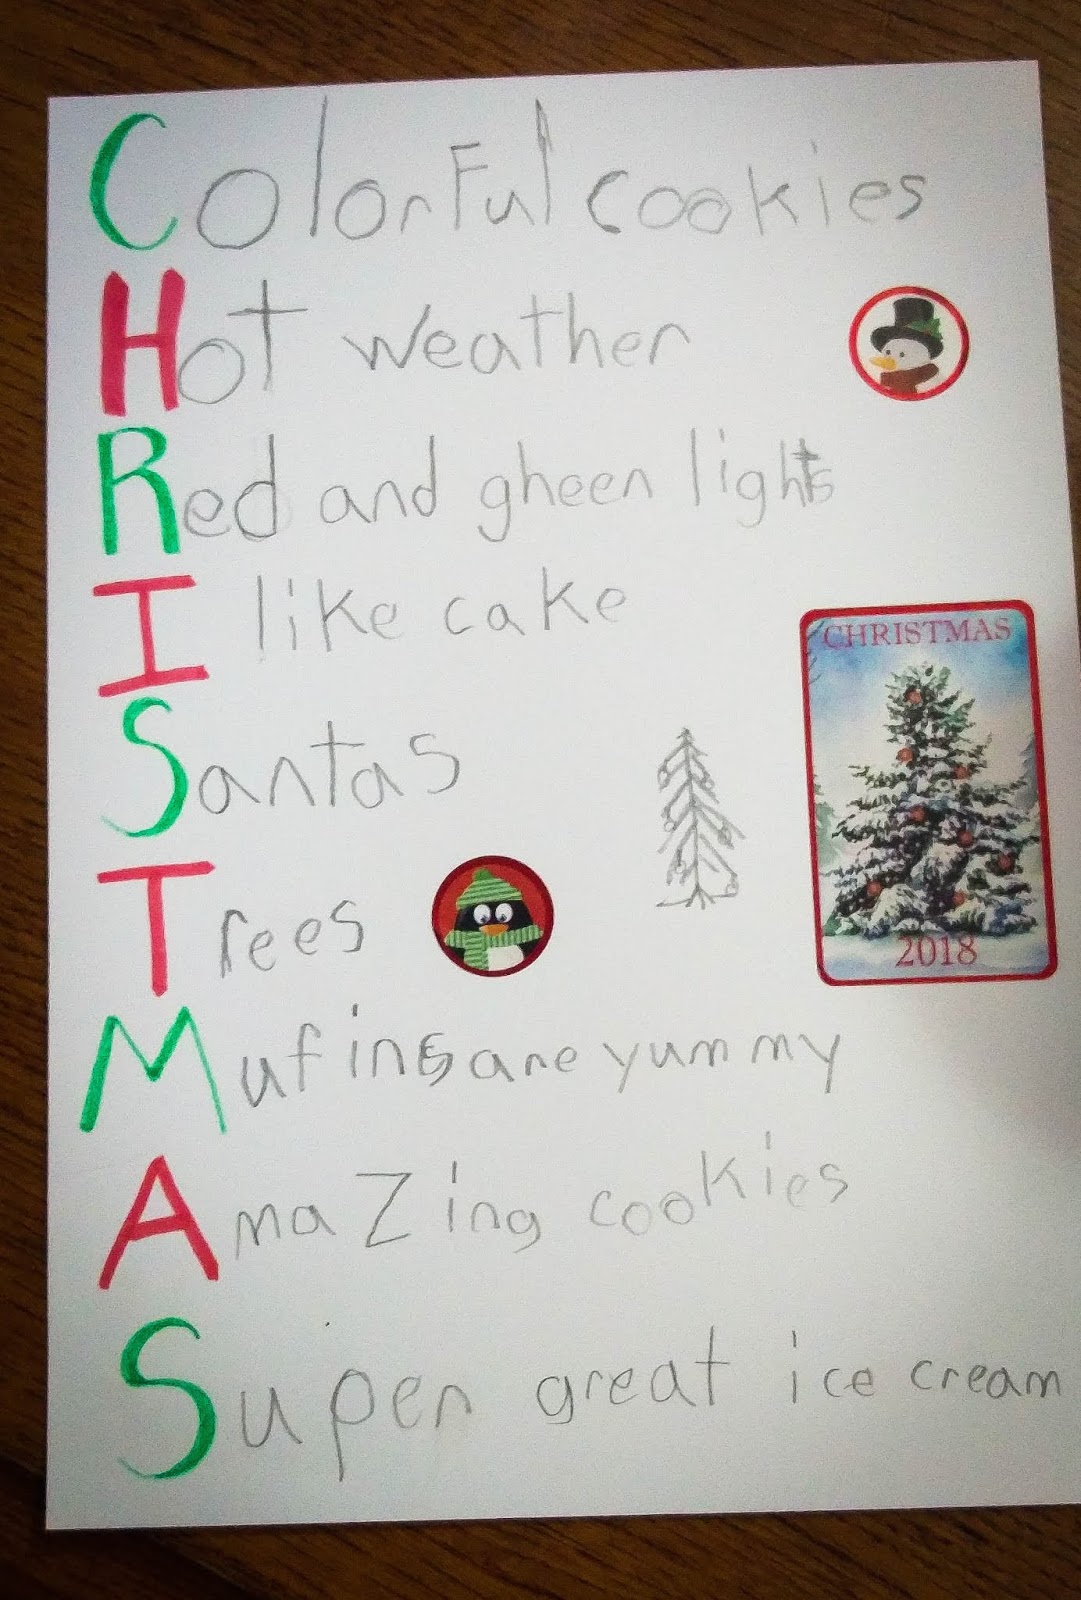 Colorful cookies
Hot weather
Red and gheen lights
I like cake
CHRISTMAS
Santas
Trees
2018
Mufins are yummy
Amazing cookies
Super great ice cream